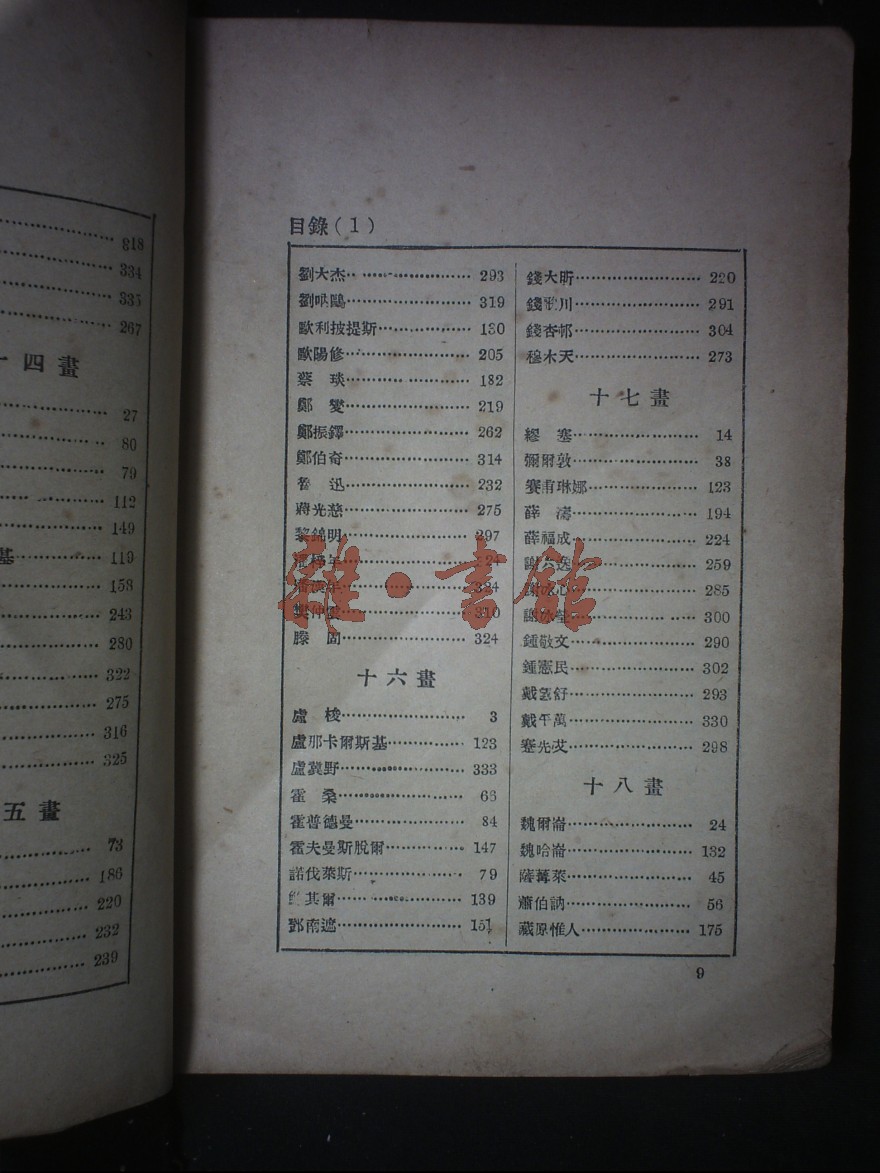 818
334
335
267
十四畫
27
80
79
112
149
基 119
158
243
280
322
275
316
325
五畫
73
186
220
232
239
目錄(1)
劉大杰 293
劉吶鷗 319
歐利披提斯 130
歐陽修 205
蔡琰 182
鄭燮 219
鄭振鐸 262
鄭伯奇 314
魯迅 232
蔣光慈 275
黎錦明 297
324
樊仲雲 310
滕固 324
十六畫
盧梭 3
盧那卡爾斯基 123
盧冀野 333
霍桑 66
霍普德曼 84
霍夫曼斯脫爾 147
諾伐萊斯 79
其爾 139
鄧南遮 151
錢大昕 220
錢歌川 291
錢杏邨 304
穆木天 273
十七畫
繆塞 14
彌爾敦 38
賽甫琳娜 123
薛濤 194
薛福成 224
謝六逸 259
謝冰心 285
謝冰瑩 300
鍾敬文 290
鍾憲民 302
戴望舒 293
戴平萬 330
蹇先艾 298
十八畫
魏爾崙 24
魏哈崙 132
薩蕚萊 45
蕭伯訥 56
藏原惟人 175
9
雜·書館